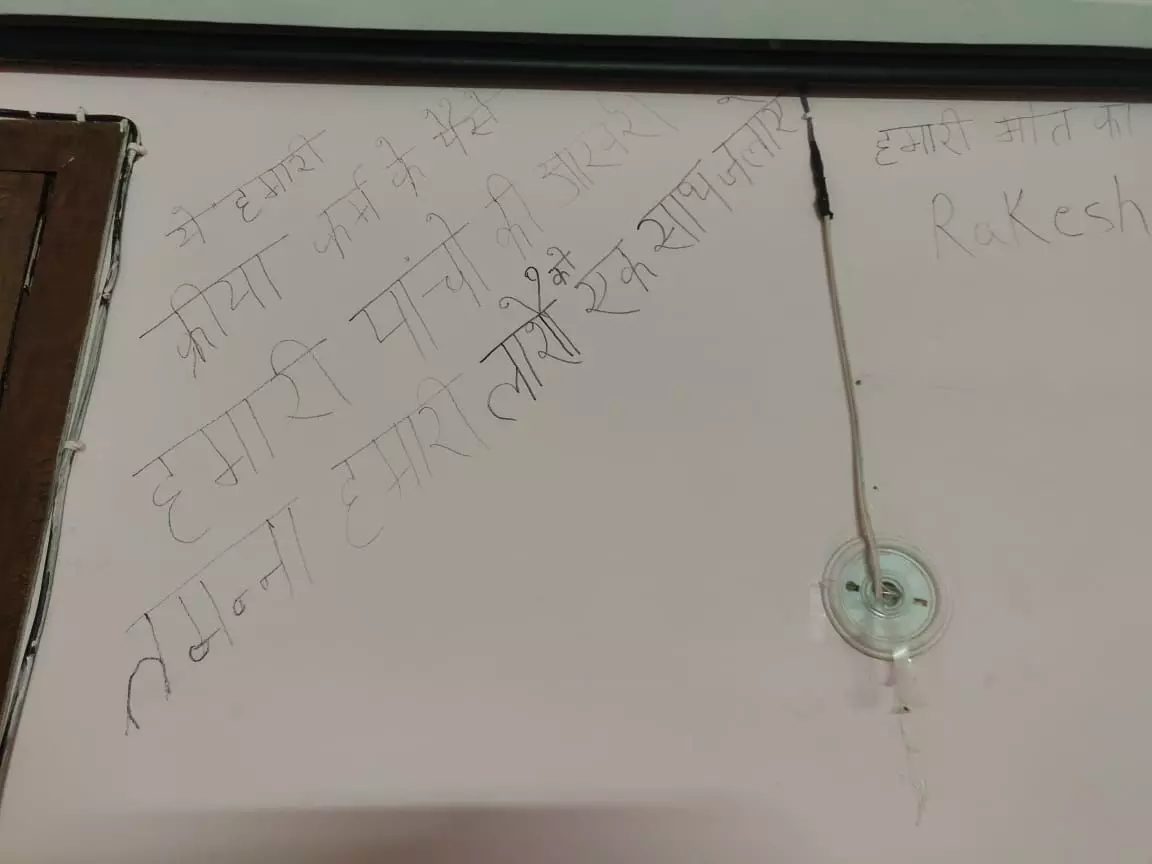 ये हमारी
क्रीया कर्म के पैसे
हमारी पांचो की आखरी
तमन्ना हमारी लाशो को एक साथ जलारे
हमारी मोत का
Rakesh